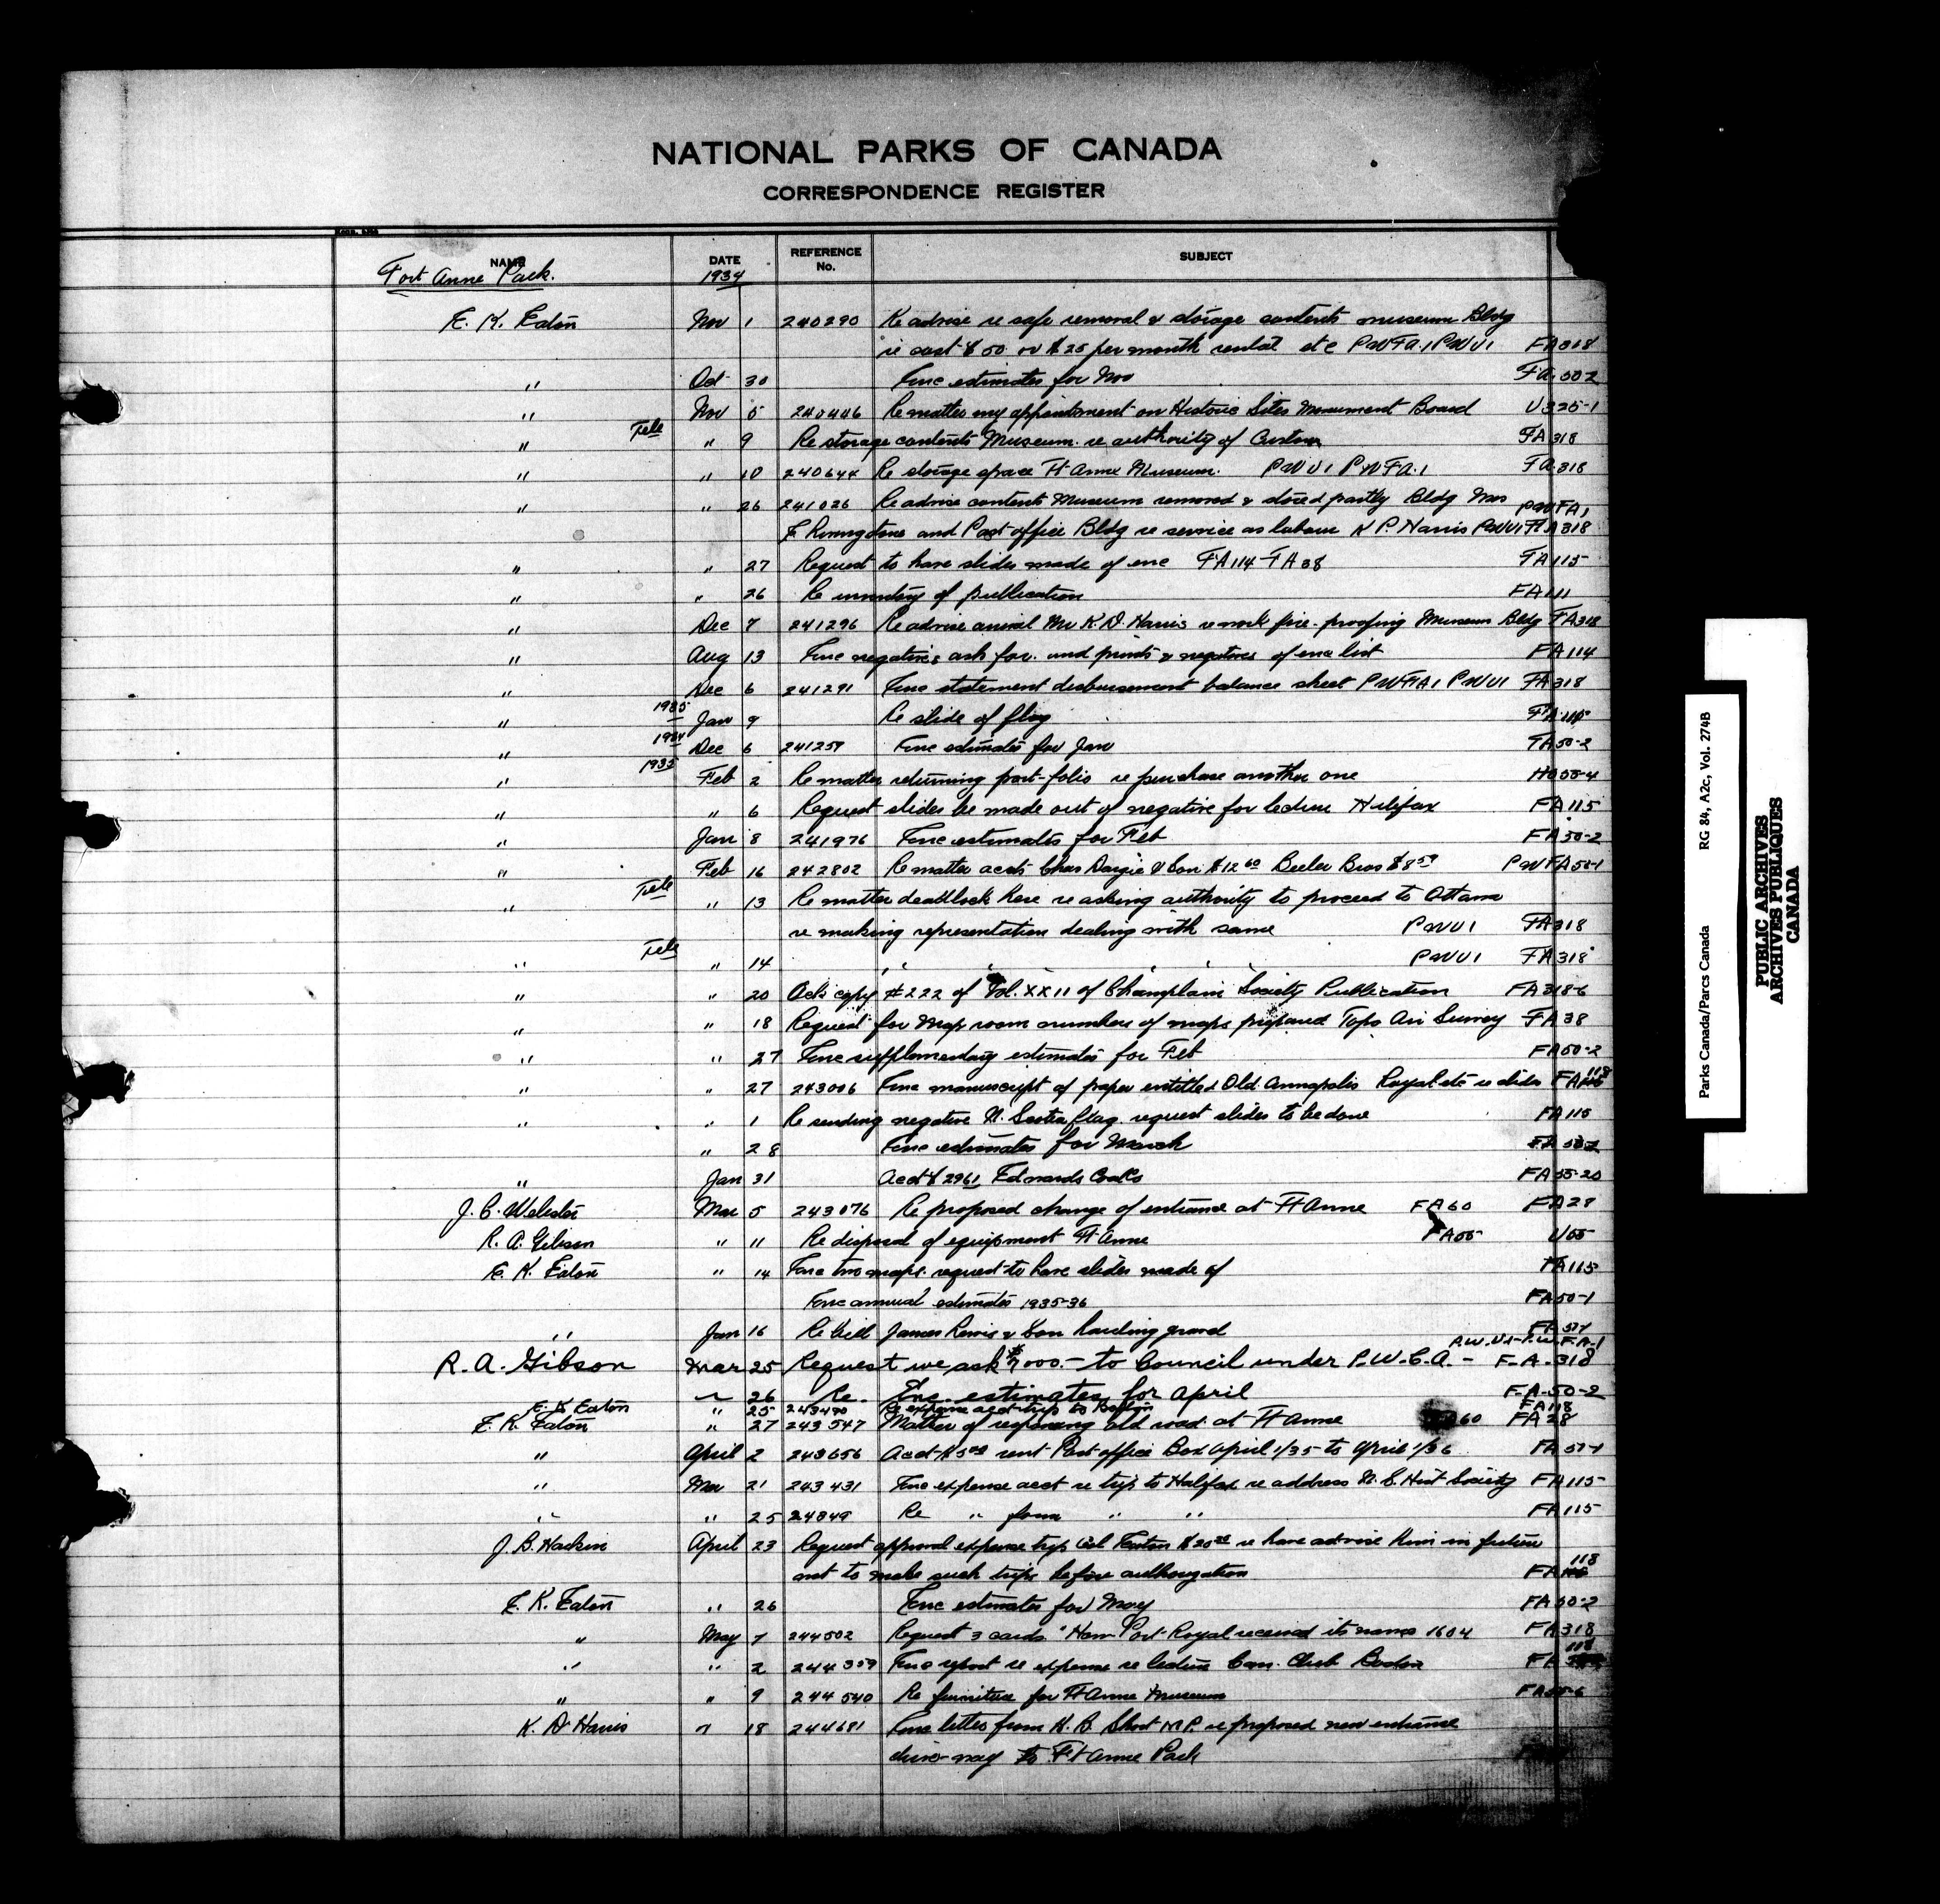 NATIONAL PARKS OF CANADA
CORRESPONDENCE REGISTER
NAME DATE REFERENCE No. SUBJECT
Fort Anne Park. 1934
E. K. Eaton Nov 1 240290 Re advise re safe removal & storage contents museum Bldg
re cost $50 or $25 per month rental etc PWFA.1 PWU1 FA318
" Oct 30 Enc estimates for Nov FA.50-2
" Nov 5 240446 Re matter my appointment on Historic Sites Monument Board U325-1
" Tele " 9 Re storage contents Museum re authority of Custom FA318
" " 10 240644 Re storage space Ft Anne Museum. PWU1 PWFA.1 FA318
" " 26 241026 Re advise contents Museum removed & stored partly Bldg Mrs PWFA1
and Post office Bldg re service as labour K P. Harris PWU1 FA318
" " 27 Request to have slides made of enc FA114 - FA38 FA115
" " 26 Re inventory of publication FA111
" Dec 7 241296 Re advise arrival Mr K.D. Harris re work fire-proofing Museum Bldg FA318
" Aug 13 Enc negatives ask for and prints & negatives of enc list FA114
" Dec 6 241291 Enc statement disbursement balance sheet PWFA1 PWU1 FA318
" 1935 Jan 9 Re slide of flag
" 1934 Dec 6 241259 Enc estimates for Jan FA50-2
" 1935 Feb 2 Re matter returning port-folio re purchase another one HO55-4
" " 6 Request slides be made out of negative for lecture Halifax FA115
" Jan 8 241976 Enc estimates for Feb FA50-2
" Feb 16 242802 Re matter accts Chas Dargie & Son $12 60 Beeler Bros $8 59 PWFA50-1
" Tele " 13 Re matter deadlock here re asking authority to proceed to Ottawa
re making representation dealing with same PWU1 FA318
" Tele " 14 " " " " " PWU1 FA318
" " 20 Ack copy #222 of Vol. XXII of Champlain Society Publication FA318-6
" " 18 Request for Map room numbers of maps prepared Topo Air Survey FA38
" " 27 Enc supplementary estimates for Feb FA50-2
" " 27 243006 Enc manuscript of paper entitled Old Annapolis Royal etc re slides FA 118
" " 1 Re sending negative N. Scotia flag request slides to be done FA115
" 28 Enc estimates for March FA 50-2
" Jan 31 Acct $2961 Edwards FA55-20
J. C. Webster Mar 5 243076 Re proposed change of entrance at Ft Anne FA60 FA28
R. A. Gibson " 11 Re disposal of equipment Ft Anne FA55 U55
E. K. Eaton " 14 Enc two maps request to have slides made of FA115
Enc annual estimates 1935-36 FA50-1
" Jan 16 Re bill James Lewis & Son hauling gravel FA57-1
P.W.U1-P.W.F.A-1
R. A. Gibson Mar 25 Request we ask $7000.- to Council under P.W.C.A. - F-A-318
" 26 Re. Enc. estimates for April F-A-50-2
E. K Eaton " 25 243490 Re expense acct trip to Boston FA118
E. K. Eaton " 27 243547 Matter of reopening old road at Ft Anne 60 FA28
" April 2 243656 Acct $5 00 rent Post office Box April 1/35 to April 1/36 FA57-1
" Mar 21 243431 Enc expense acct re trip to Halifax re address N.S. Hist Society FA115
" " 25 24849 Re " form " " FA115
J. B. Harkin April 23 Request approval expense trip Col Eaton re have advise him in future
not to make such trips before authorization FA 118
E. K. Eaton " 26 Enc estimates for May FA50-2
" May 7 244502 Request 3 cards "How Port Royal received its name 1604 FA318
" " 2 244359 Enc report re expense re lecture Can. Club Boston FA 118
" " 9 244540 Re furniture for Ft Anne Museum FA55-6
K. D Harris " 18 244681 Enc letter from H. B. Short M.P. re proposed new entrance
drive-way to Ft Anne Park
Parks Canada/Parcs Canada RG 84, A2c, Vol. 274B
PUBLIC ARCHIVES
ARCHIVES PUBLIQUES
CANADA